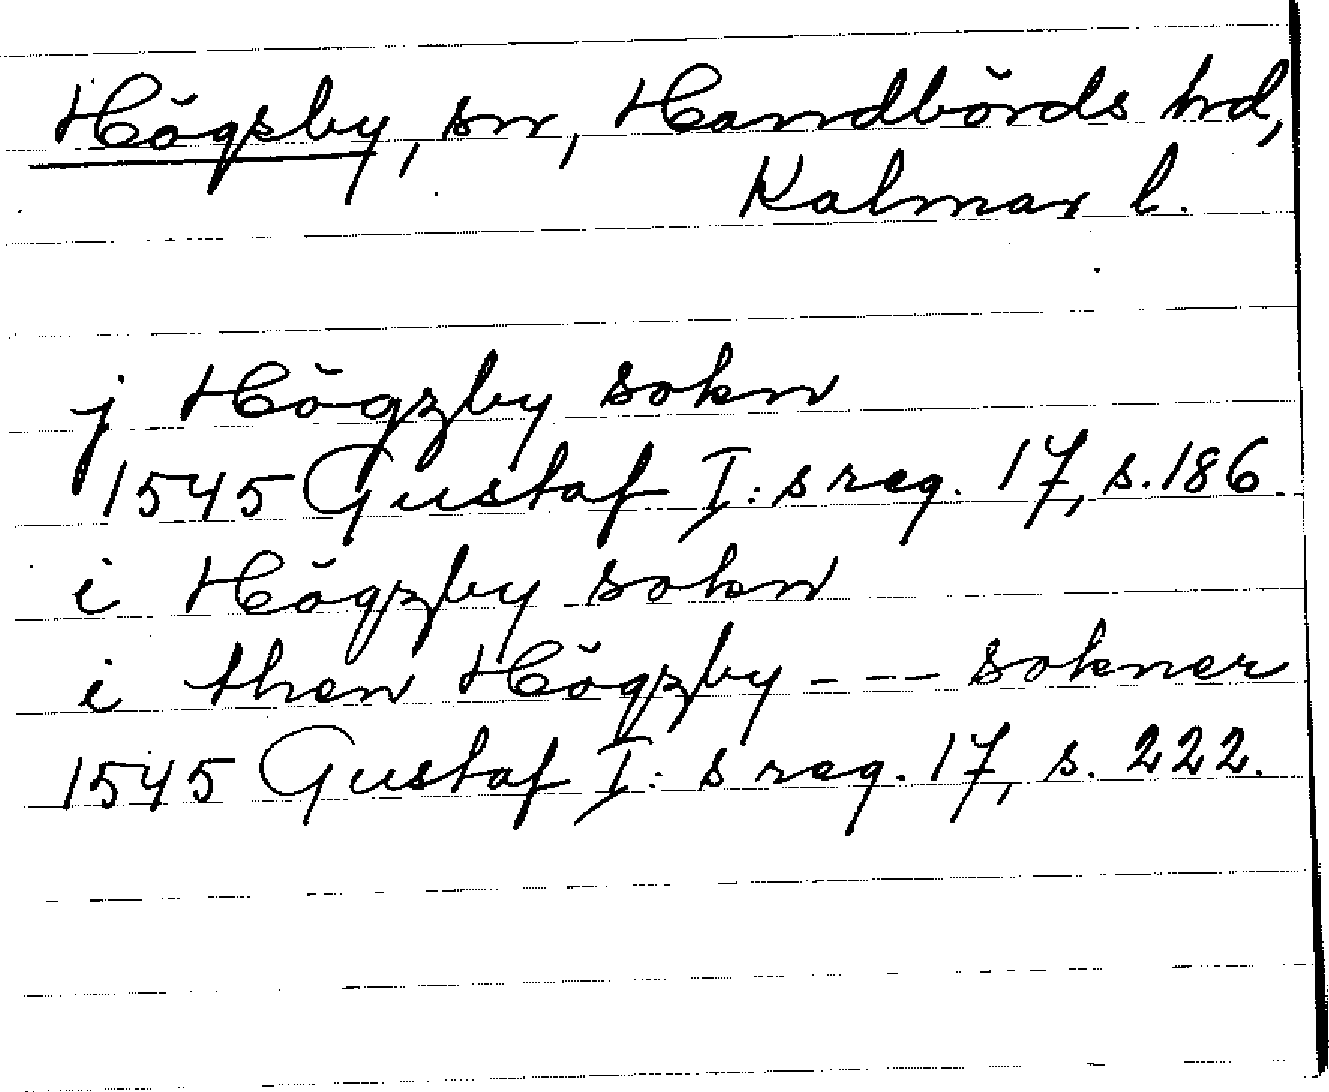 Högsby, sn, Handbörds hd,
Kalmar l.
j Högzby sokn
1545 Gustaf I:s reg. 17, s. 186
i Högzby sokn
i then Högzby --- sokner
1545 Gustaf I:s reg. 17, s. 222.